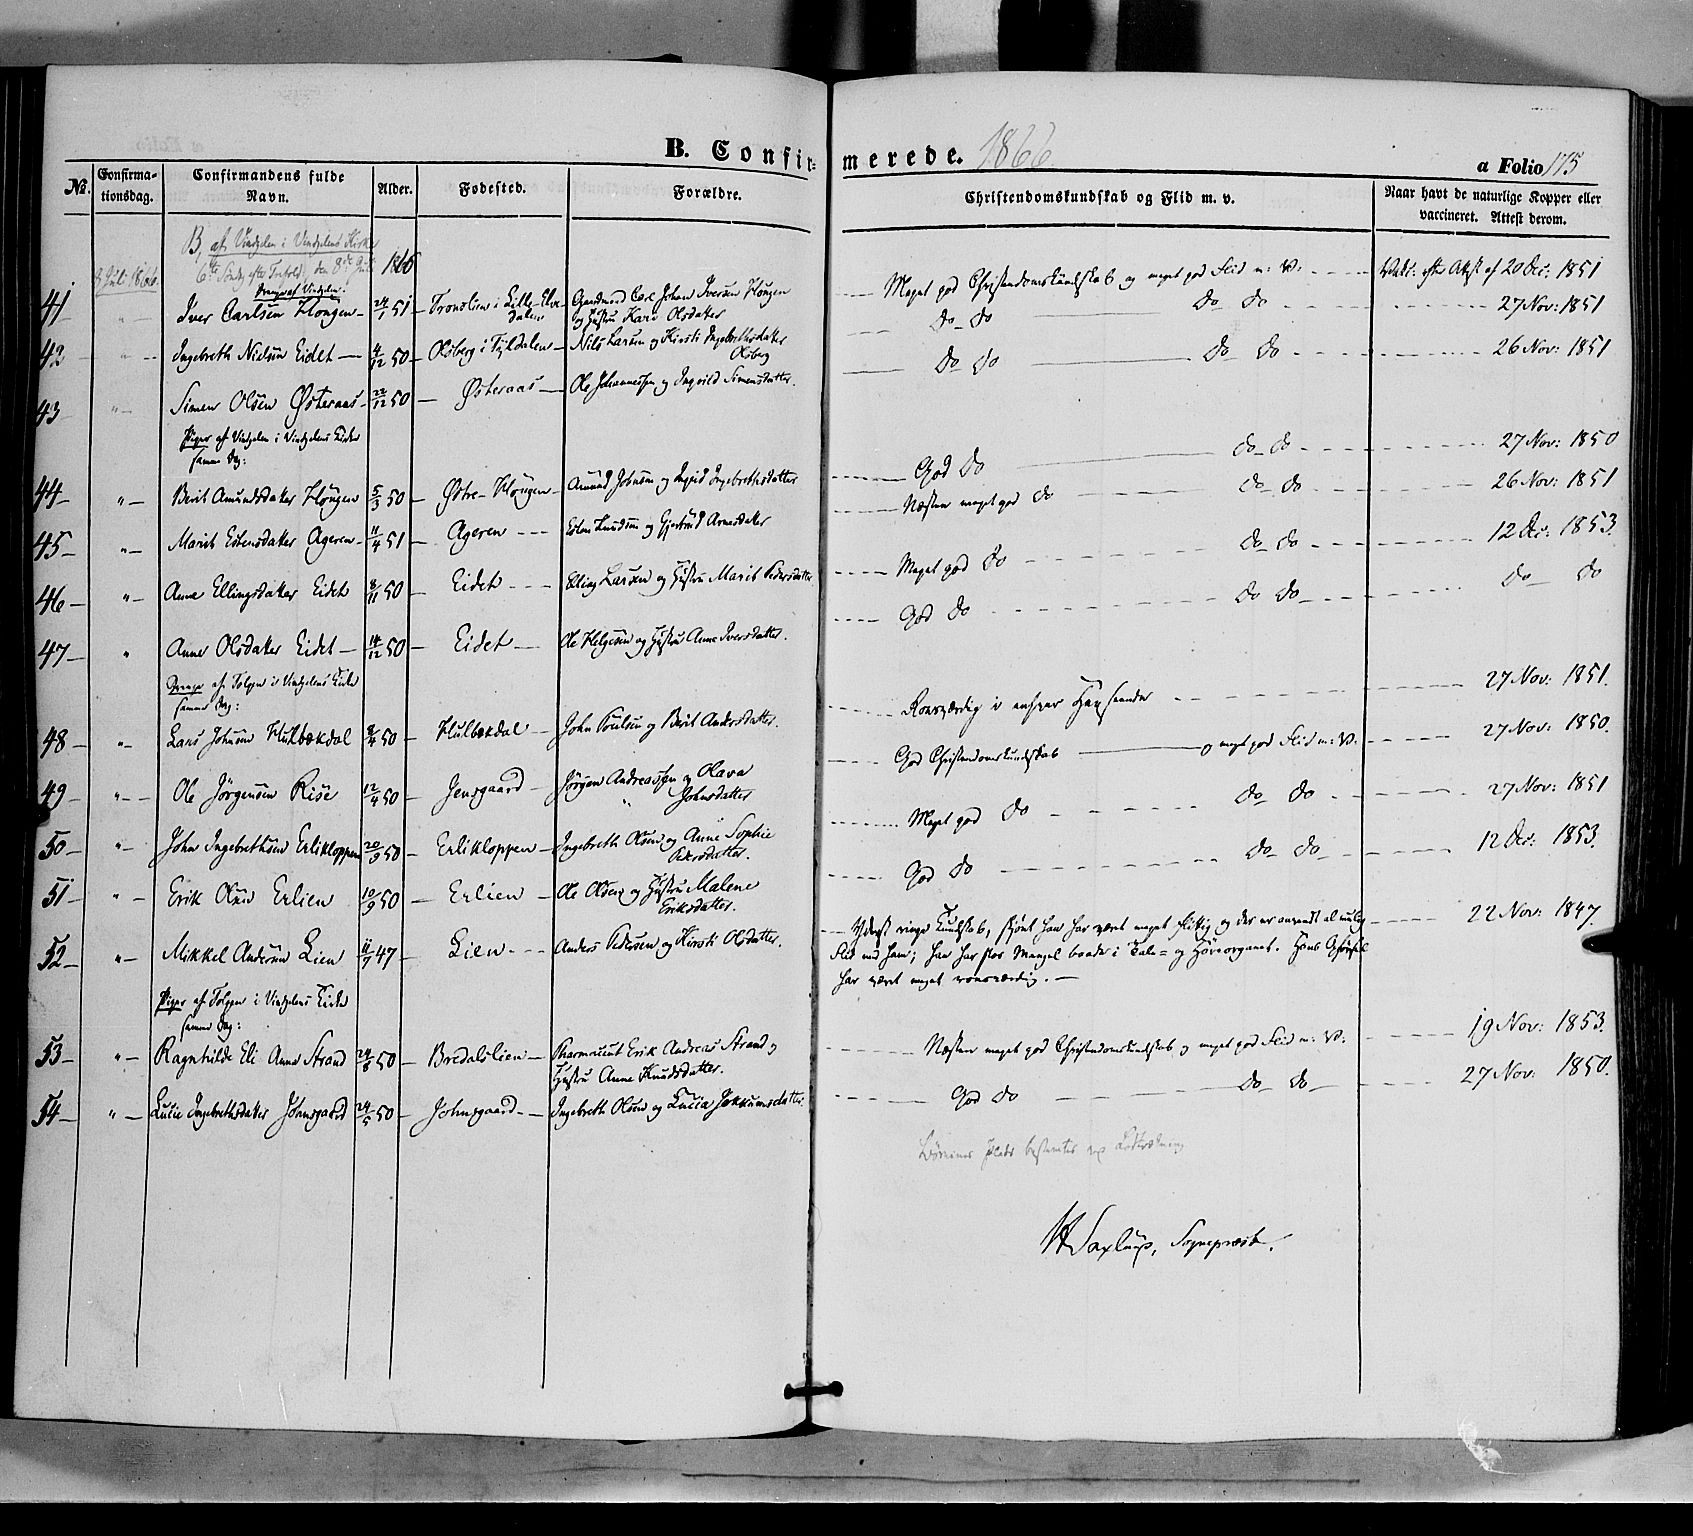 B. Confir-merede. 1866
a Folio 175
No. Confirma-tionsdag. Confirmandens fulde Navn. Alder. Fødested. Forældre. Christendomskundskab og Flid m. v. Naar havt de naturlige Kopper eller vaccineret. Attest derom.
B, af Vindgelen i Vindgelens Kirke
6te Sønd. efter Trinit. den 8de Juli 1866
8 Juli 1866.
Drenge af Vindgelen:
41 " Iver Carlsen Hougen 24/1 51 Tronslien i Lille-Elvdalen Gaardmand Carl Johan Iversen Hougen og Hustru Kari Olsdatter Meget god Christendomskundskab og meget god Flid m: V: Vaks: efter Attest af 20 Dec: 1851
42 " Ingebreth Nielsen Eidet 4/12 50 Olsberg i Tyldalen Nils Larsen og Kirsti Ingebrethsdatter Olsberg do do do do 27 Nov: 1851
43 " Simen Olsen Østeraas 22/12 50 Østeraas Ole Johannessen og Ingrild Simensdatter. do do do do 26 Nov: 1851
Piger af Vindgelen i Vindgelens Kirke
samme Dag:
44 " Berit Amundsdatter Hougen 5/3 50 Østre-Hougen Amund Johnsen og Ingrid Ingebrethsdatter God do do do 27 Nov: 1850
45 " Marit Estensdatter Ageren 11/4 51 Ageren Esten Knudsen og Gjertrud Arnesdatter Næsten meget god do do do 26 Nov: 1851
46 " Anne Ellingsdatter Eidet 8/11 50 Eidet Elling Larsen og Hustru Marit Pedersdatter Meget god do do do 12 Dec: 1853.
47 " Anne Olsdatter Eidet 14/12 50 Eidet Ole Helgesen og Hustru Anne Iversdatter. God do do do do do
Drenge af Tolgen i Vindgelens Kirke
samme Dag:
48 " Lars Johnsen Hulbækdal 8/4 50 Hulbækdal John Poulsen og Berit Andersdatter. Roesværdig i enhver Henseende 27 Nov: 1851.
49 " Ole Jørgensen Rise 12/4 50 Jensgaard Jørgen Andreassen og Olava Johnsdatter God Christendomskundskab og meget god Flid m: V: 27 Nov: 1850.
50 " John Ingebrethsen Erlikloppen 20/9 50 Erlikloppen Ingebreth Olsen og Anne Sophie Pedersdatter. Meget god do do do 27 Nov: 1851
51 " Erik Olsen Erlien 10/9 50 Erlien Ole Olsen og Hustru Malene Eriksdatter. God do do do 12 Dec: 1853.
52 " Mikkel Andersen Lien 11/7 47 Lien Anders Pedersen og Kirsti Olsdatter. Yderst ringe Kundskab, skjønt han har været meget flittig og der er anvendt al mulig 22 Nov: 1847.
Flid med ham; han har stor Mangel baade i Tale- og Høreorganet. Hans Opførsel
har været meget roesværdig.
Piger af Tolgen i Vindgelens Kirke
samme Dag:
53 " Ragnhilde Eli Anna Strand 24/8 50 Bredalslien Pharmaceut Erik Andreas Strand og Hustru Anne Knudsdatter. Næsten meget god Christendomskundskab og meget god Flid m: V: 19 Nov: 1853.
54 " Lucie Ingebrethsdatter Johnsgaard 24/5 50 Johnsgaard Ingebreth Olsen og Lucia Jokkumsdatter God do do do 27 Nov: 1850.
Børnenes Plads bestemtes ved Lodtrækning
Saxlund, Sognepræst.